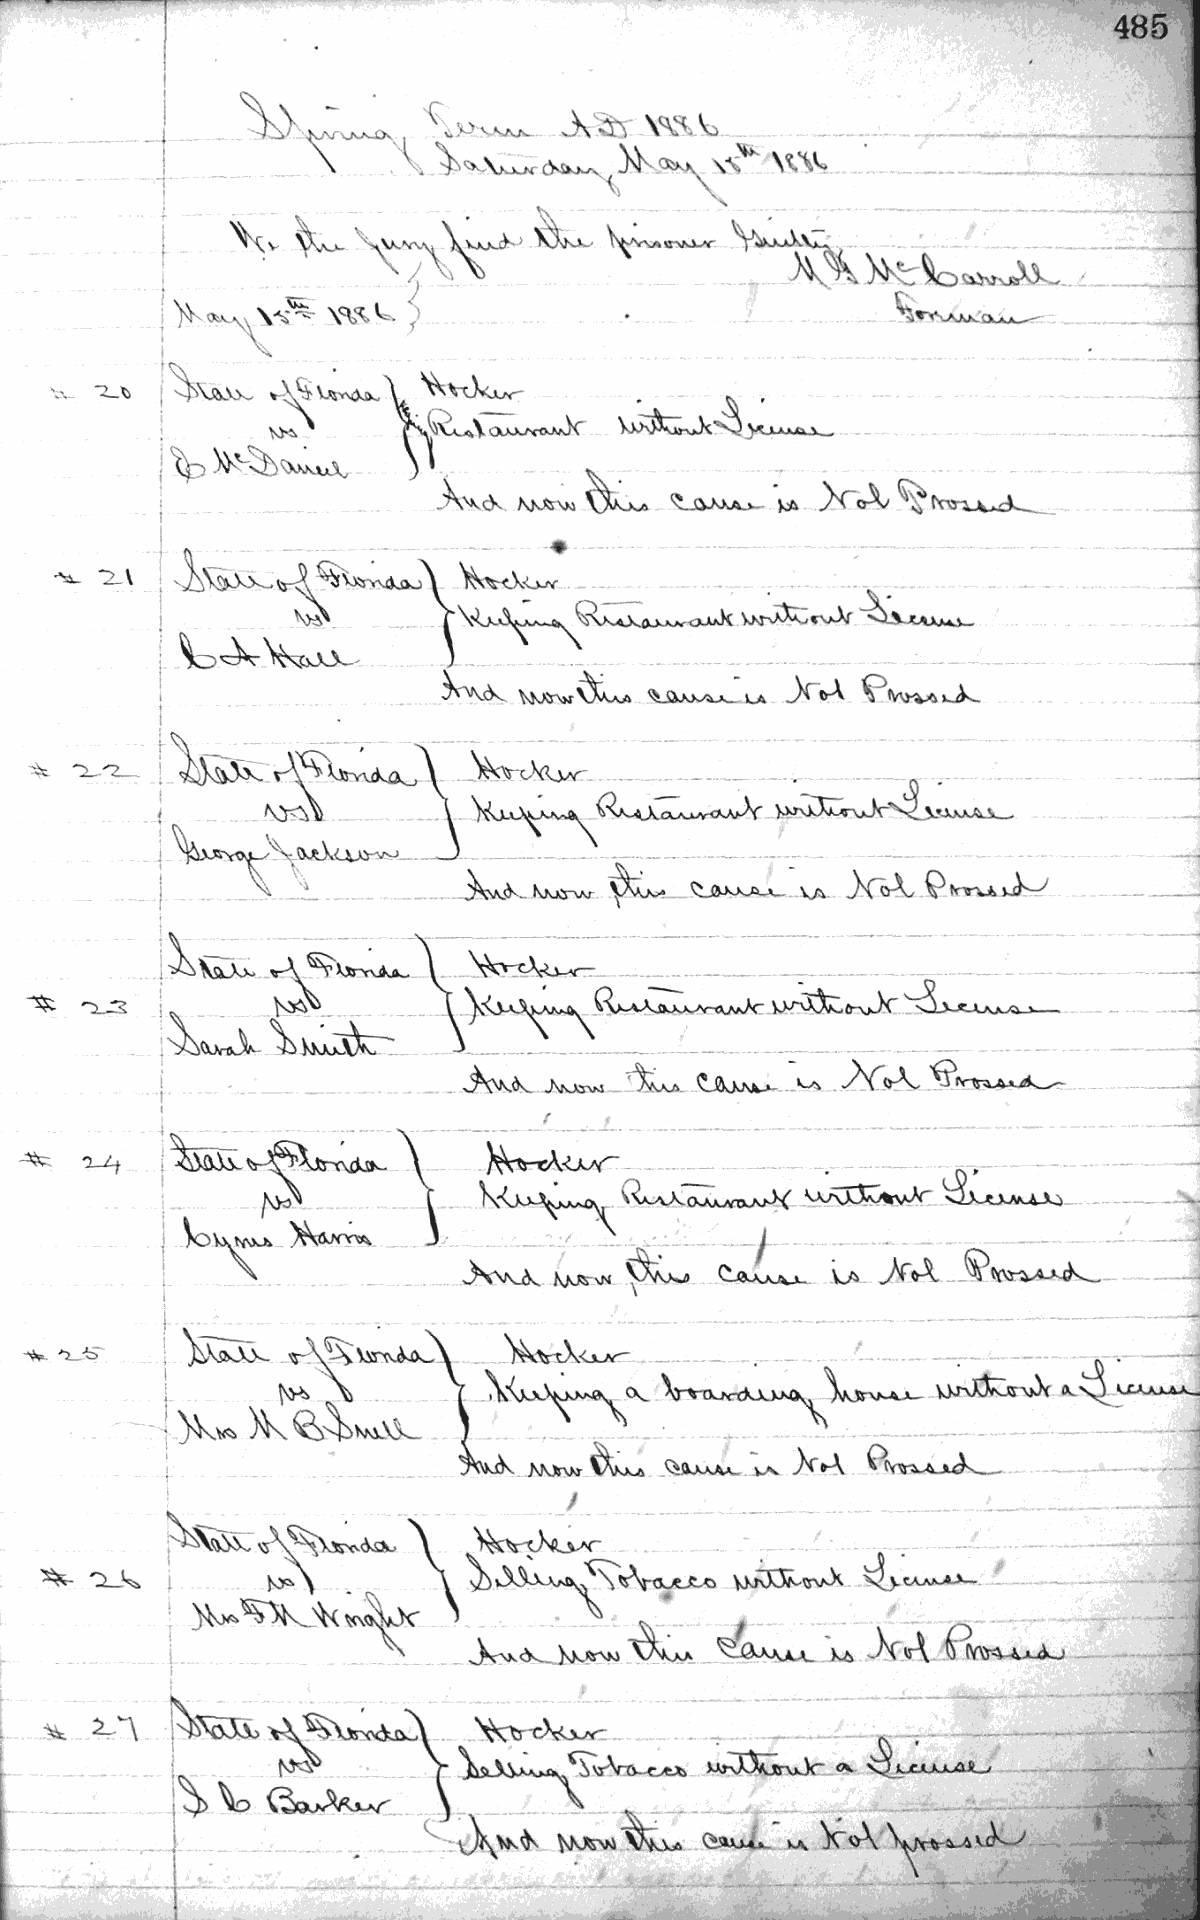 485
Spring Term AD 1886
Saturday, May 15th 1886
We the Jury find the prisoner Guilty
M G McCarroll
Forman
May 15th 1886
# 20 State of Florida Hocker
vs Restaurant without License
McDaniel
And now this cause is Nol Prossed
# 21 State of Florida Hocker
vs Keeping Restaurant without License
C A Hall
And now this cause is Nol Prossed
# 22 State of Florida Hocker
vs Keeping Restaurant without License
George Jackson
And now this cause is Nol Prossed
State of Florida Hocker
# 23 vs Keeping Restaurant without License
Sarah Smith
And now this cause is Nol Prossed
# 24 State of Florida Hocker
vs Keeping Restaurant without License
Cyrus Harris
And now, this cause is Nol Prossed
# 25 State of Florida Hocker
vs Keeping a boarding house without a License
Mrs M B Snell
And now this cause is Nol Prossed
State of Florida Hocker
# 26 vs Selling Tobacco without License
Mrs F M Wright
And now this cause is Nol Prossed
# 27 State of Florida Hocker
vs Selling Tobacco without a License
S C Barker
And now this cause is Nol prossed